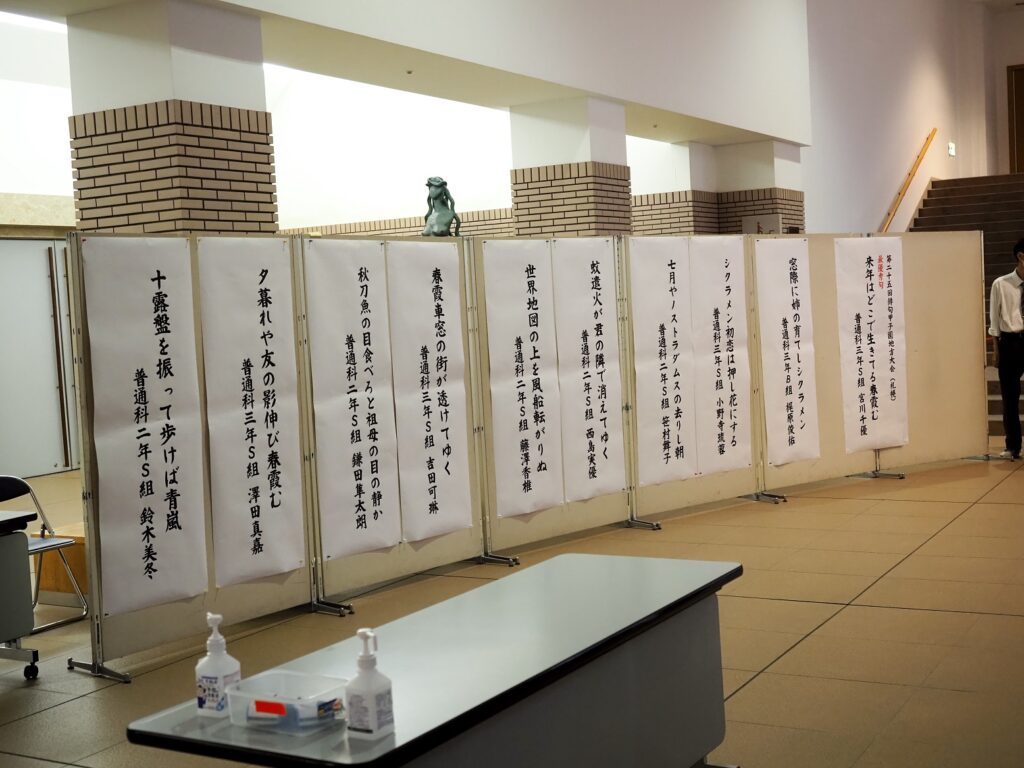 第二十五回俳句甲子園地方大会(札幌)
最優秀句
来年はどこで生きてる春霞む
普通科三年S組 宮川千優
窓際に姉の育てしシクラメン
普通科三年B組 梶原俊佑
シクラメン初恋は押し花にする
普通科三年S組 小野寺琉蓉
七月やノストラダムスの去りし朝
普通科二年S組 笹村舞子
蚊遣火が君の隣で消えてゆく
普通科二年S組 西島実優
世界地図の上を風船転がりぬ
普通科二年S組 藤澤香雅
春霞車窓の街が透けてゆく
普通科三年S組 吉田可琳
秋刀魚の目食べろと祖母の目の静か
普通科二年S組 鎌田隼太朗
夕暮れや友の影伸び春霞む
普通科三年S組 澤田真嘉
十露盤を振って歩けば青嵐
普通科二年S組 鈴木美冬